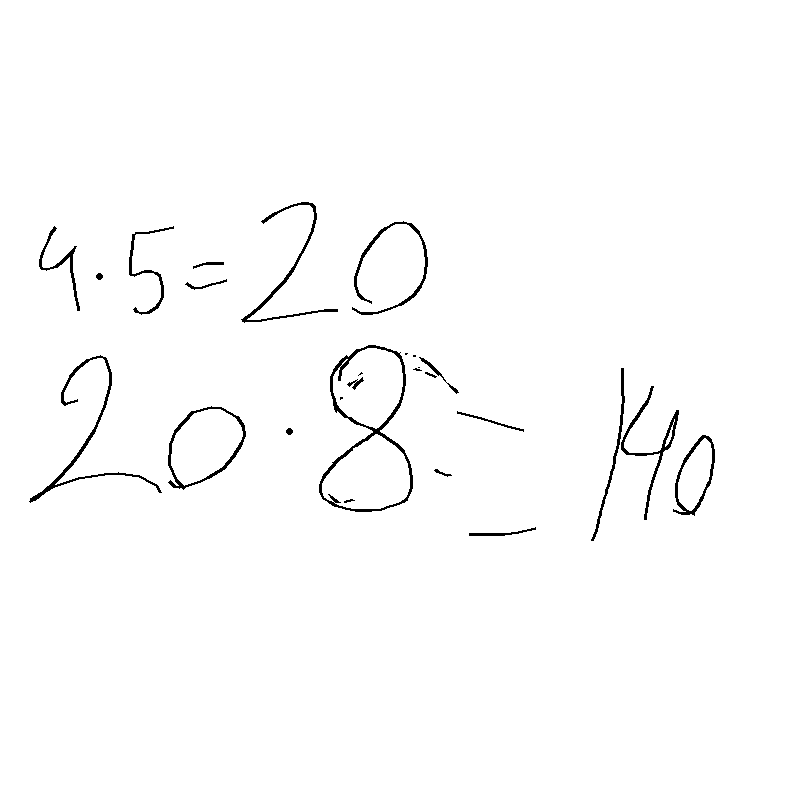 4·5=20
20·8=140